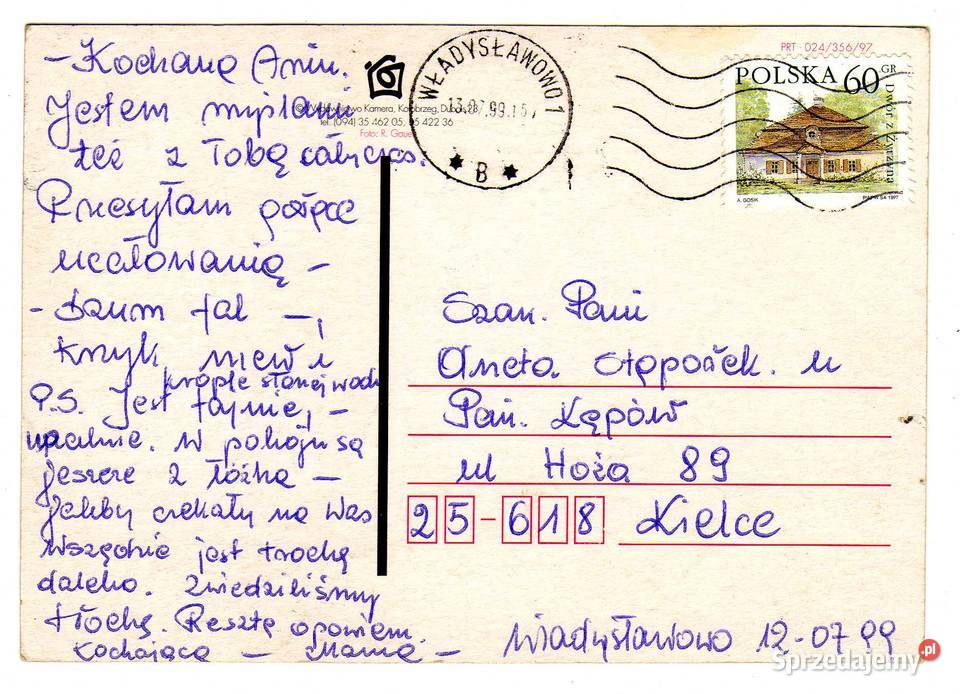 - Kochana Aniu.
Jestem myślami
też z Tobą cały czas.
Przesyłam gorące
ucałowania -
- szum fal -,
krzyk mew i
krople słonej wody
P.S. Jest fajnie, -
upalnie. W pokoju są
jeszcze 2 łóżka -
jakby czekały na Was
Wszędzie jest trochę
daleko. Zwiedziliśmy
trochę. Resztę opowiem.
Kochająca - Mama -
Wydawnictwo Kamera, Kołobrzeg, Dubois 20
tel. (094) 35 462 05, 35 422 36
Foto: R. Gauer
WŁADYSŁAWOWO 1
13.07.99.15
* B *
PRT - 024/356/97
POLSKA 60 GR
Dwór z Żyrzyna
A. GOSIK
PWPW SA 1997
Szan. Pani
Aneta Stąporek u
Pań. Kępów
ul Hoża 89
25-618 Kielce
Władysławowo 12-07 99
Sprzedajemy.pl